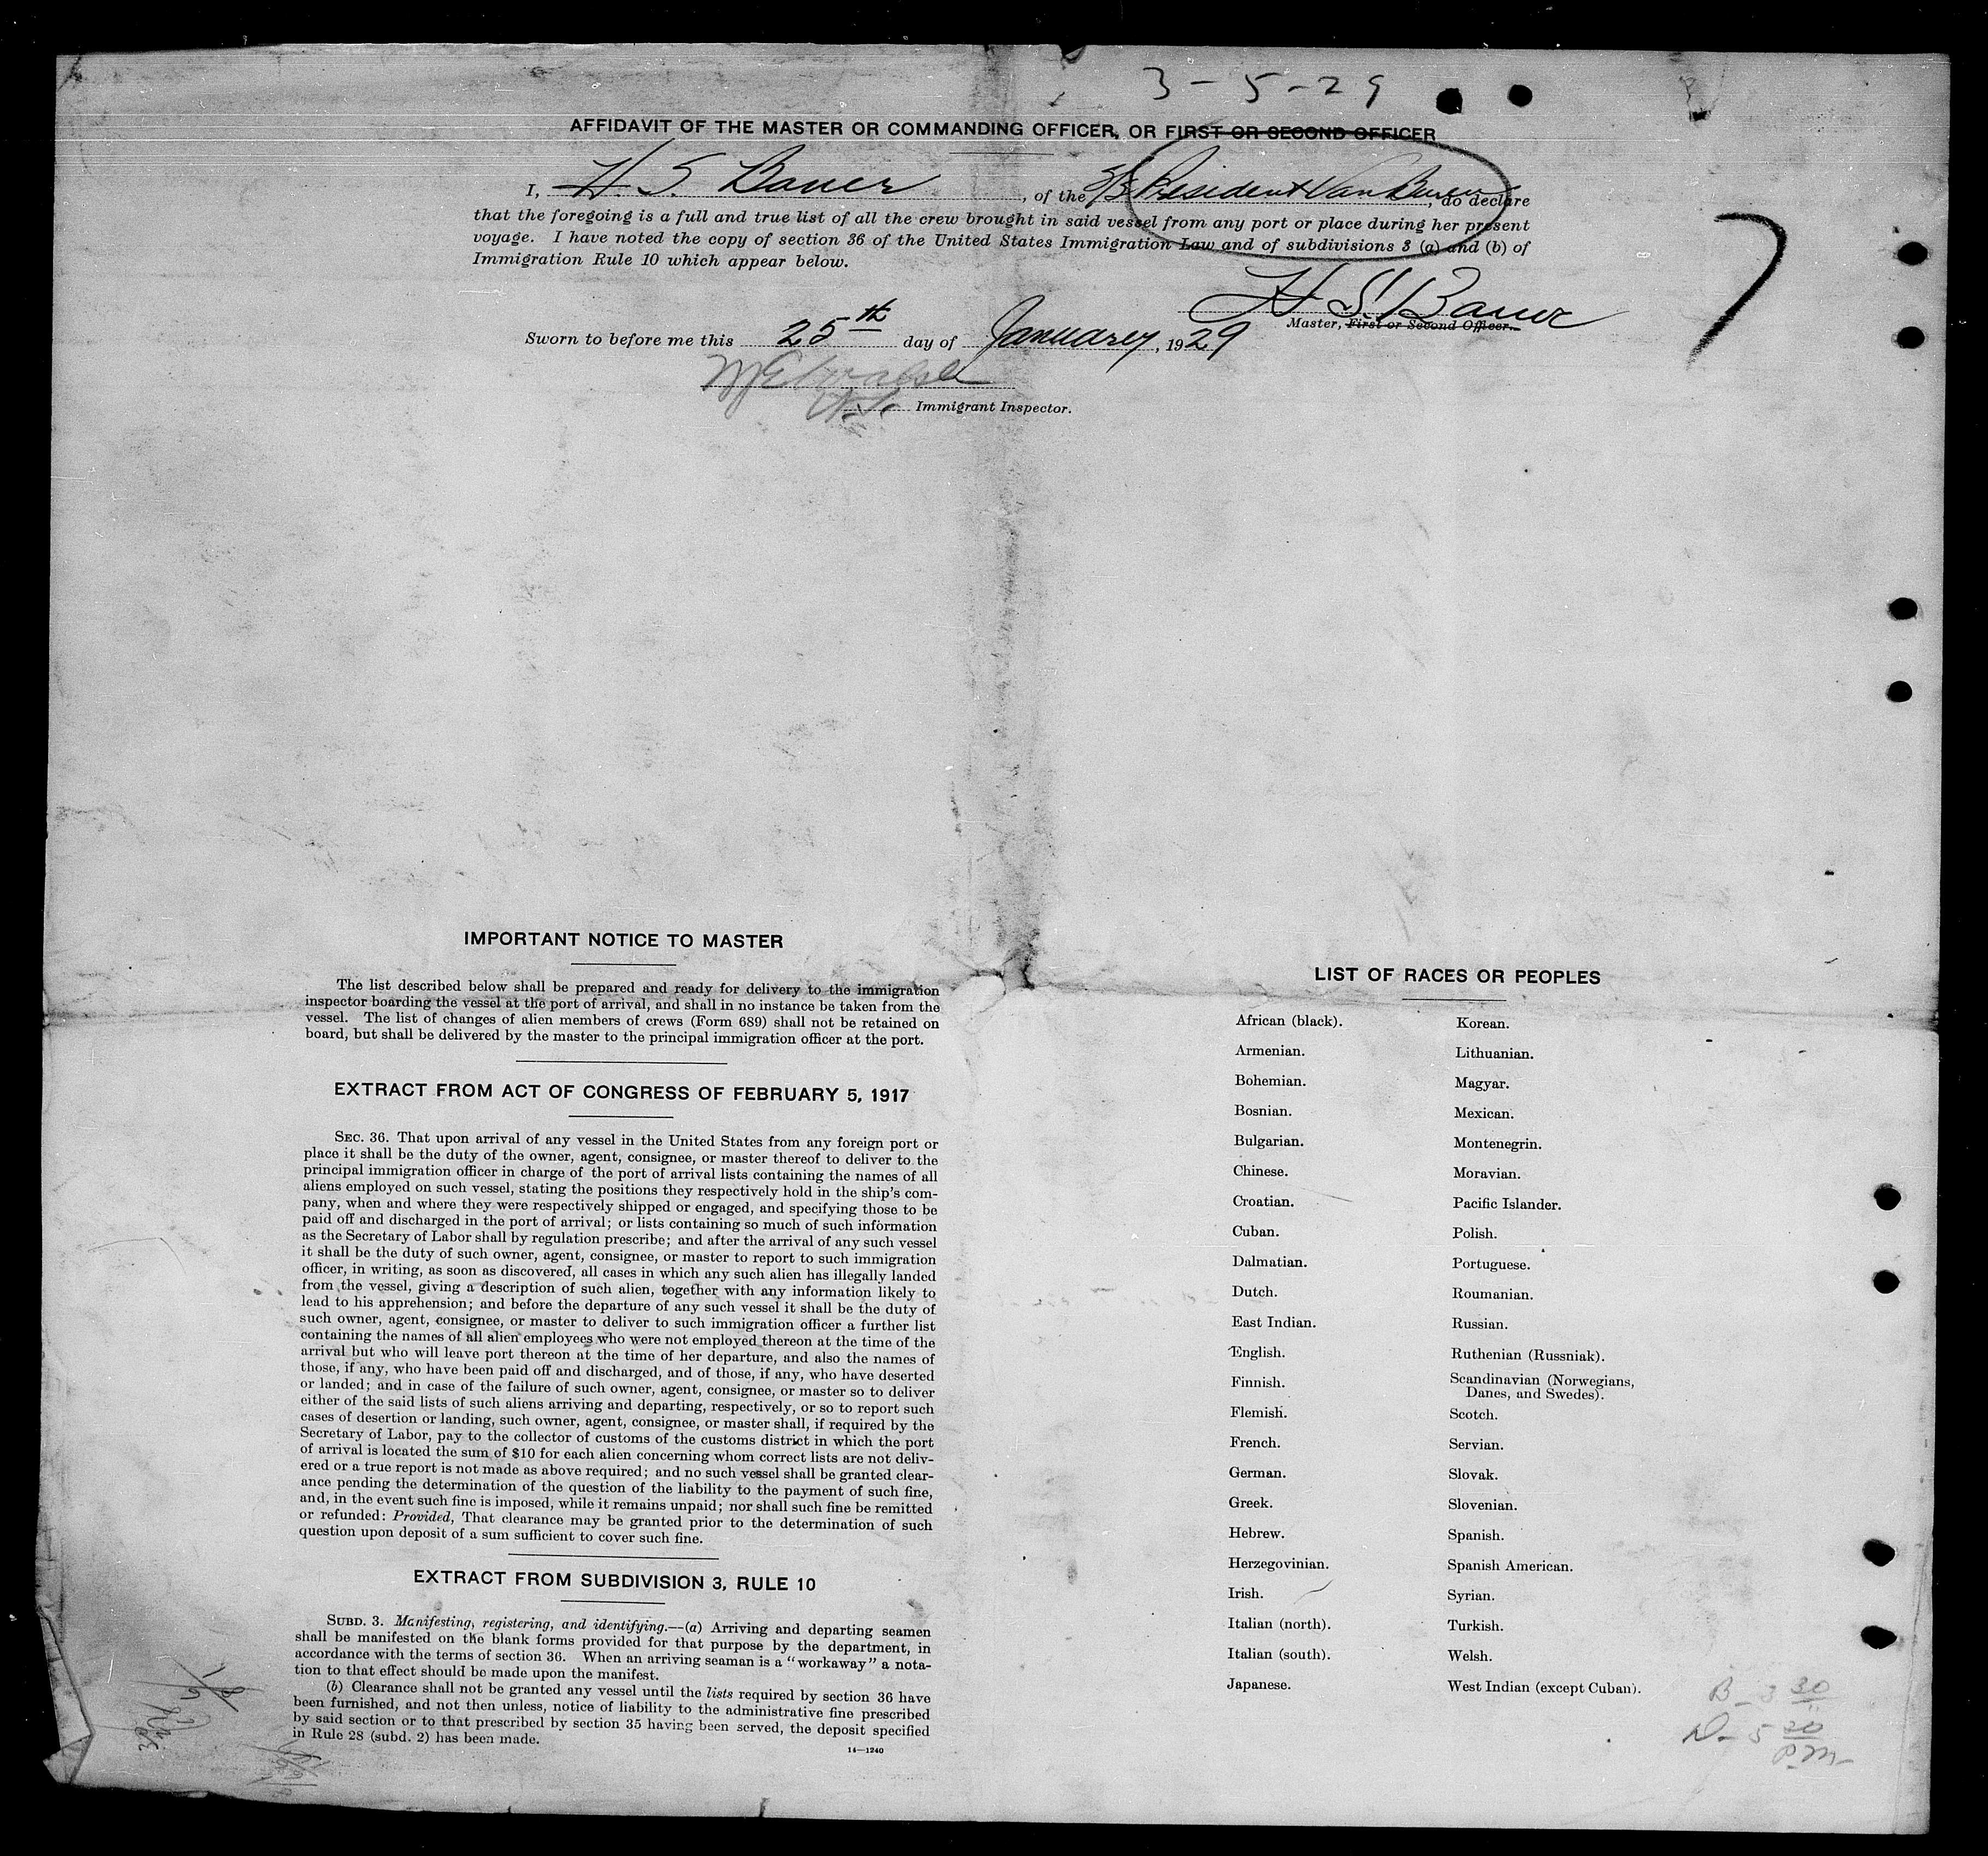 3-5-29
AFFIDAVIT OF THE MASTER OR COMMANDING OFFICER, OR FIRST OR SECOND OFFICER
I, H. S. Bauer, of the S/S President Van Buren, do declare
that the foregoing is a full and true list of all the crew brought in said vessel from any port or place during her present
voyage. I have noted the copy of section 36 of the United States Immigration Law and of subdivisions 3 (a) and (b) of
Immigration Rule 10 which appear below.
H. S. Bauer
Master, First or Second Officer.
Sworn to before me this 25th day of Januarey, 1929
Immigrant Inspector.
7
IMPORTANT NOTICE TO MASTER
The list described below shall be prepared and ready for delivery to the immigration
inspector boarding the vessel at the port of arrival, and shall in no instance be taken from the
vessel. The list of changes of alien members of crews (Form 689) shall not be retained on
board, but shall be delivered by the master to the principal immigration officer at the port.
EXTRACT FROM ACT OF CONGRESS OF FEBRUARY 5, 1917
SEC. 36. That upon arrival of any vessel in the United States from any foreign port or
place it shall be the duty of the owner, agent, consignee, or master thereof to deliver to the
principal immigration officer in charge of the port of arrival lists containing the names of all
aliens employed on such vessel, stating the positions they respectively hold in the ship's com-
pany, when and where they were respectively shipped or engaged, and specifying those to be
paid off and discharged in the port of arrival; or lists containing so much of such information
as the Secretary of Labor shall by regulation prescribe; and after the arrival of any such vessel
it shall be the duty of such owner, agent, consignee, or master to report to such immigration
officer, in writing, as soon as discovered, all cases in which any such alien has illegally landed
from the vessel, giving a description of such alien, together with any information likely to
lead to his apprehension; and before the departure of any such vessel it shall be the duty of
such owner, agent, consignee, or master to deliver to such immigration officer a further list
containing the names of all alien employees who were not employed thereon at the time of the
arrival but who will leave port thereon at the time of her departure, and also the names of
those, if any, who have been paid off and discharged, and of those, if any, who have deserted
or landed; and in case of the failure of such owner, agent, consignee, or master so to deliver
either of the said lists of such aliens arriving and departing, respectively, or so to report such
cases of desertion or landing, such owner, agent, consignee, or master shall, if required by the
Secretary of Labor, pay to the collector of customs of the customs district in which the port
of arrival is located the sum of $10 for each alien concerning whom correct lists are not deliv-
ered or a true report is not made as above required; and no such vessel shall be granted clear-
ance pending the determination of the question of the liability to the payment of such fine,
and, in the event such fine is imposed, while it remains unpaid; nor shall such fine be remitted
or refunded: Provided, That clearance may be granted prior to the determination of such
question upon deposit of a sum sufficient to cover such fine.
EXTRACT FROM SUBDIVISION 3, RULE 10
SUBD. 3. Manifesting, registering, and identifying.—(a) Arriving and departing seamen
shall be manifested on the blank forms provided for that purpose by the department, in
accordance with the terms of section 36. When an arriving seaman is a "workaway" a nota-
tion to that effect should be made upon the manifest.
(b) Clearance shall not be granted any vessel until the lists required by section 36 have
been furnished, and not then unless, notice of liability to the administrative fine prescribed
by said section or to that prescribed by section 35 having been served, the deposit specified
in Rule 28 (subd. 2) has been made.
14—1240
LIST OF RACES OR PEOPLES
African (black).
Armenian.
Bohemian.
Bosnian.
Bulgarian.
Chinese.
Croatian.
Cuban.
Dalmatian.
Dutch.
East Indian.
English.
Finnish.
Flemish.
French.
German.
Greek.
Hebrew.
Herzegovinian.
Irish.
Italian (north).
Italian (south).
Japanese.
Korean.
Lithuanian.
Magyar.
Mexican.
Montenegrin.
Moravian.
Pacific Islander.
Polish.
Portuguese.
Roumanian.
Russian.
Ruthenian (Russniak).
Scandinavian (Norwegians,
Danes, and Swedes).
Scotch.
Servian.
Slovak.
Slovenian.
Spanish.
Spanish American.
Syrian.
Turkish.
Welsh.
West Indian (except Cuban).
B - 3 30
D - 5 30
P.M.